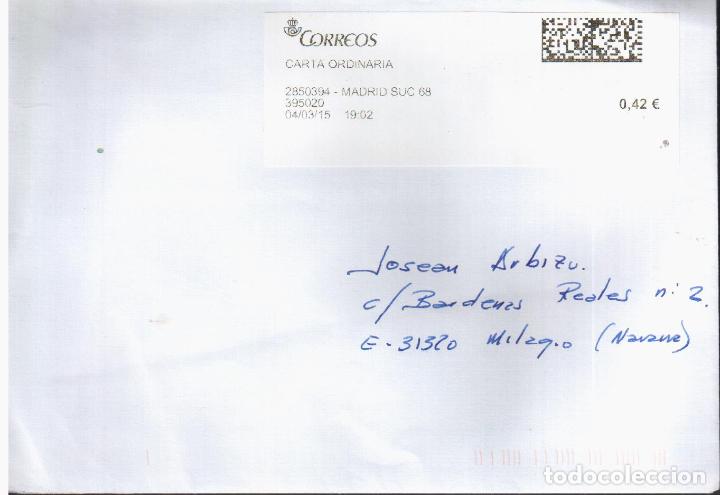 CORREOS
CARTA ORDINARIA
2850394 - MADRID SUC 68
395020
04/03/15 19:02
0,42 €
Josean Arbizu.
c/ Bardenas Reales nº 2.
E - 31320 Milagro (Navarra)
todocoleccion